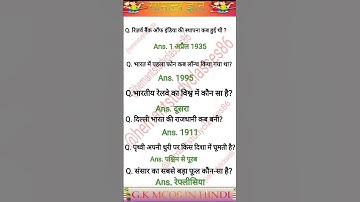 सामान्य ज्ञान
Q. रिज़र्व बैंक ऑफ इंडिया की स्थापना कब हुई थी ?
Ans. 1 अप्रैल 1935
Q. भारत में पहला फोन कब लॉन्च किया गया था?
Ans. 1995
Q.भारतीय रेलवे का विश्व में कौन सा है?
Ans. दूसरा
Q. दिल्ली भारत की राजधानी कब बनी?
Ans. 1911
Q. पृथ्वी अपनी धुरी पर किस दिशा में घूमती है?
Ans. पश्चिम से पूरब
Q. संसार का सबसे बड़ा फूल कौन-सा है?
Ans. रेफ्लीसिया
G.K MCQS IN HINDI
@hemantstudyclasses86